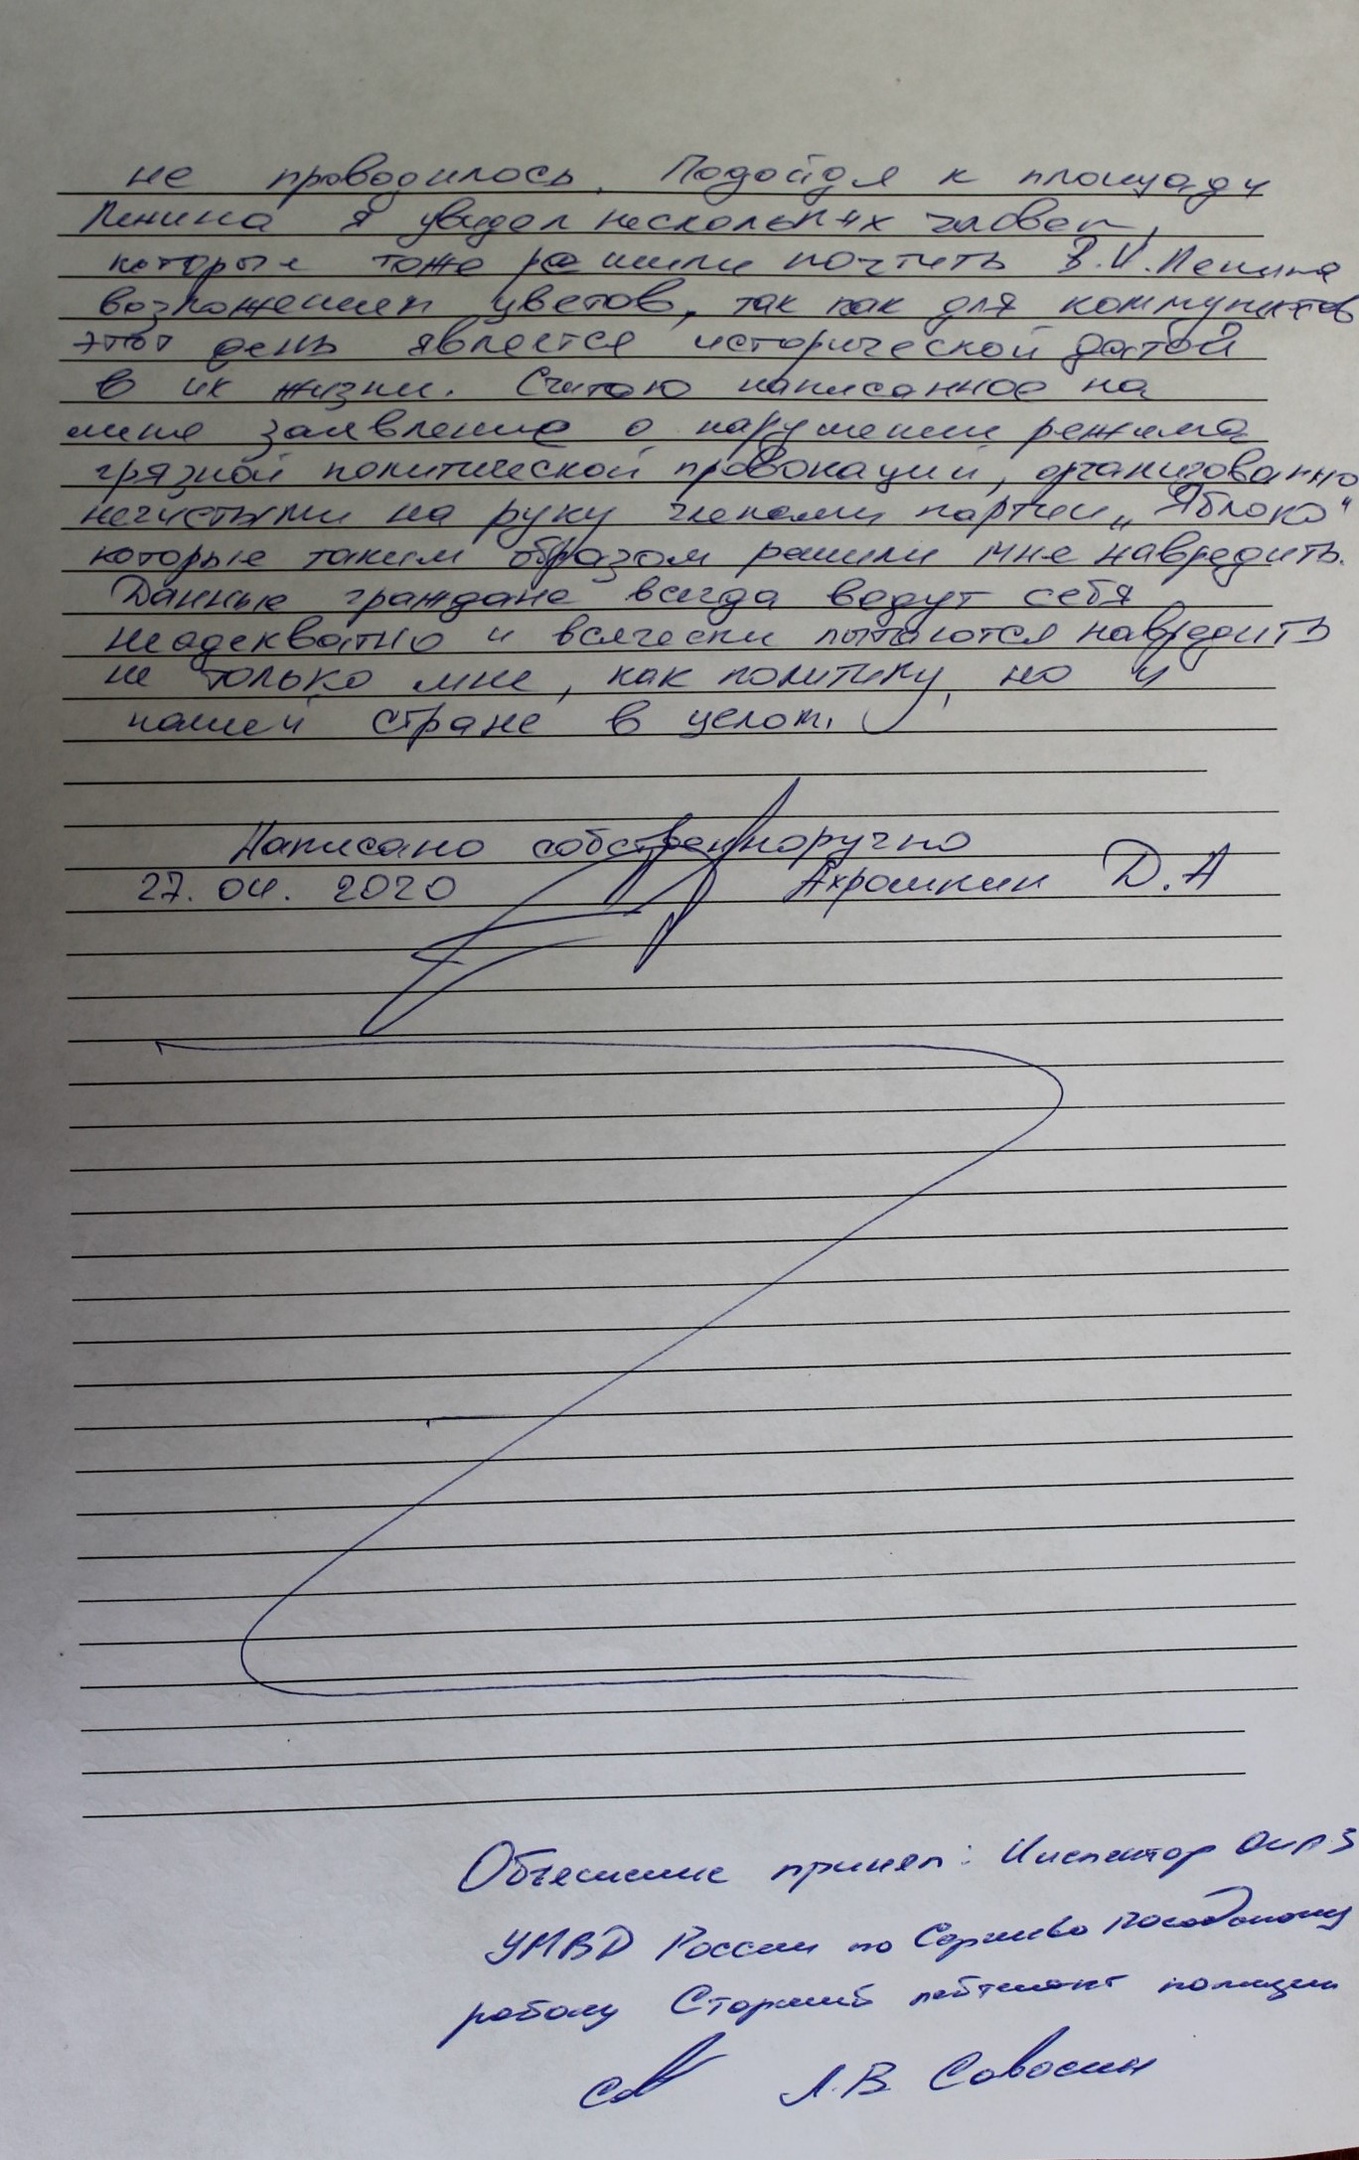 не проводилось. Подойдя к площади
Ленина я увидел нескольких человек,
которые тоже решили почтить В.И. Ленина
возложением цветов, так как для коммунистов
этот день является исторической датой
в их жизни. Считаю написанное на
меня заявление о нарушении режима
грязной политической провокации, организованно
нечистыми на руку членами партии „Яблоко“
которые таким образом решили мне навредить.
Данные граждане всегда ведут себя
неадекватно и всячески пытаются навредить
не только мне, как политику, но и
нашей стране в целом.
Написано собственноручно
27.04.2020 Ахромкин Д.А
Объяснение принял: Инспектор ОИАЗ
УМВД России по Сергиево Посадскому
району Старший лейтенант полиции
Л.В. Савосин